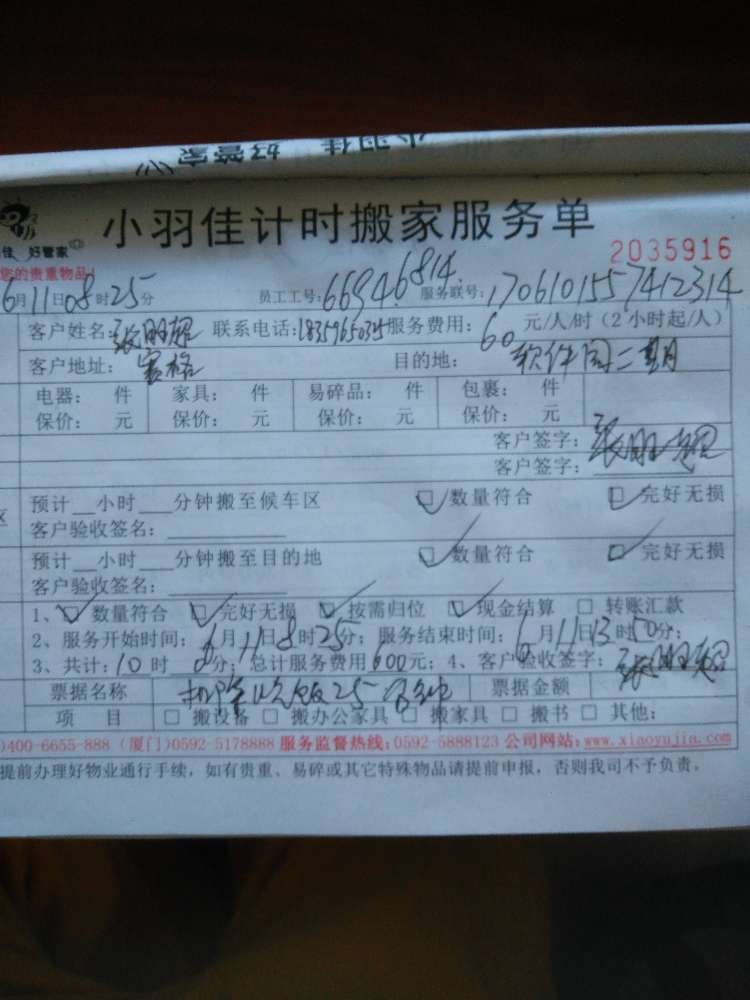 小羽佳 好管家
小羽佳计时搬家服务单
佳 好管家
2035916
您的贵重物品!
6月11日08时25分 员工工号:66946814 服务联号:1706101557412314
客户姓名: 联系电话: 服务费用:60元/人/时(2小时起/人)
客户地址:赛格 目的地:软件园二期
电器: 件 家具: 件 易碎品: 件 包裹: 件
保价: 元 保价: 元 保价: 元 保价: 元
客户签字:
客户签字:
预计__小时___分钟搬至候车区 □数量符合 □完好无损
区 客户验收签名:
预计__小时___分钟搬至目的地 □数量符合 □完好无损
客户验收签名:
1、□数量符合 □完好无损 □按需归位 □现金结算 □转账汇款
2、服务开始时间:6月11日8时25分; 服务结束时间:6月11日13时50分;
3、共计:10时0分; 总计服务费用600元; 4、客户验收签字:
票据名称 扣除吃饭25分钟 票据金额
项 目 □搬设备 □搬办公家具 □搬家具 □搬书 □其他:
)400-6655-888 (厦门)0592-5178888 服务监督热线:0592-5888123 公司网站:www.xiaoyujia.com
提前办理好物业通行手续,如有贵重、易碎或其它特殊物品请提前申报,否则我司不予负责。